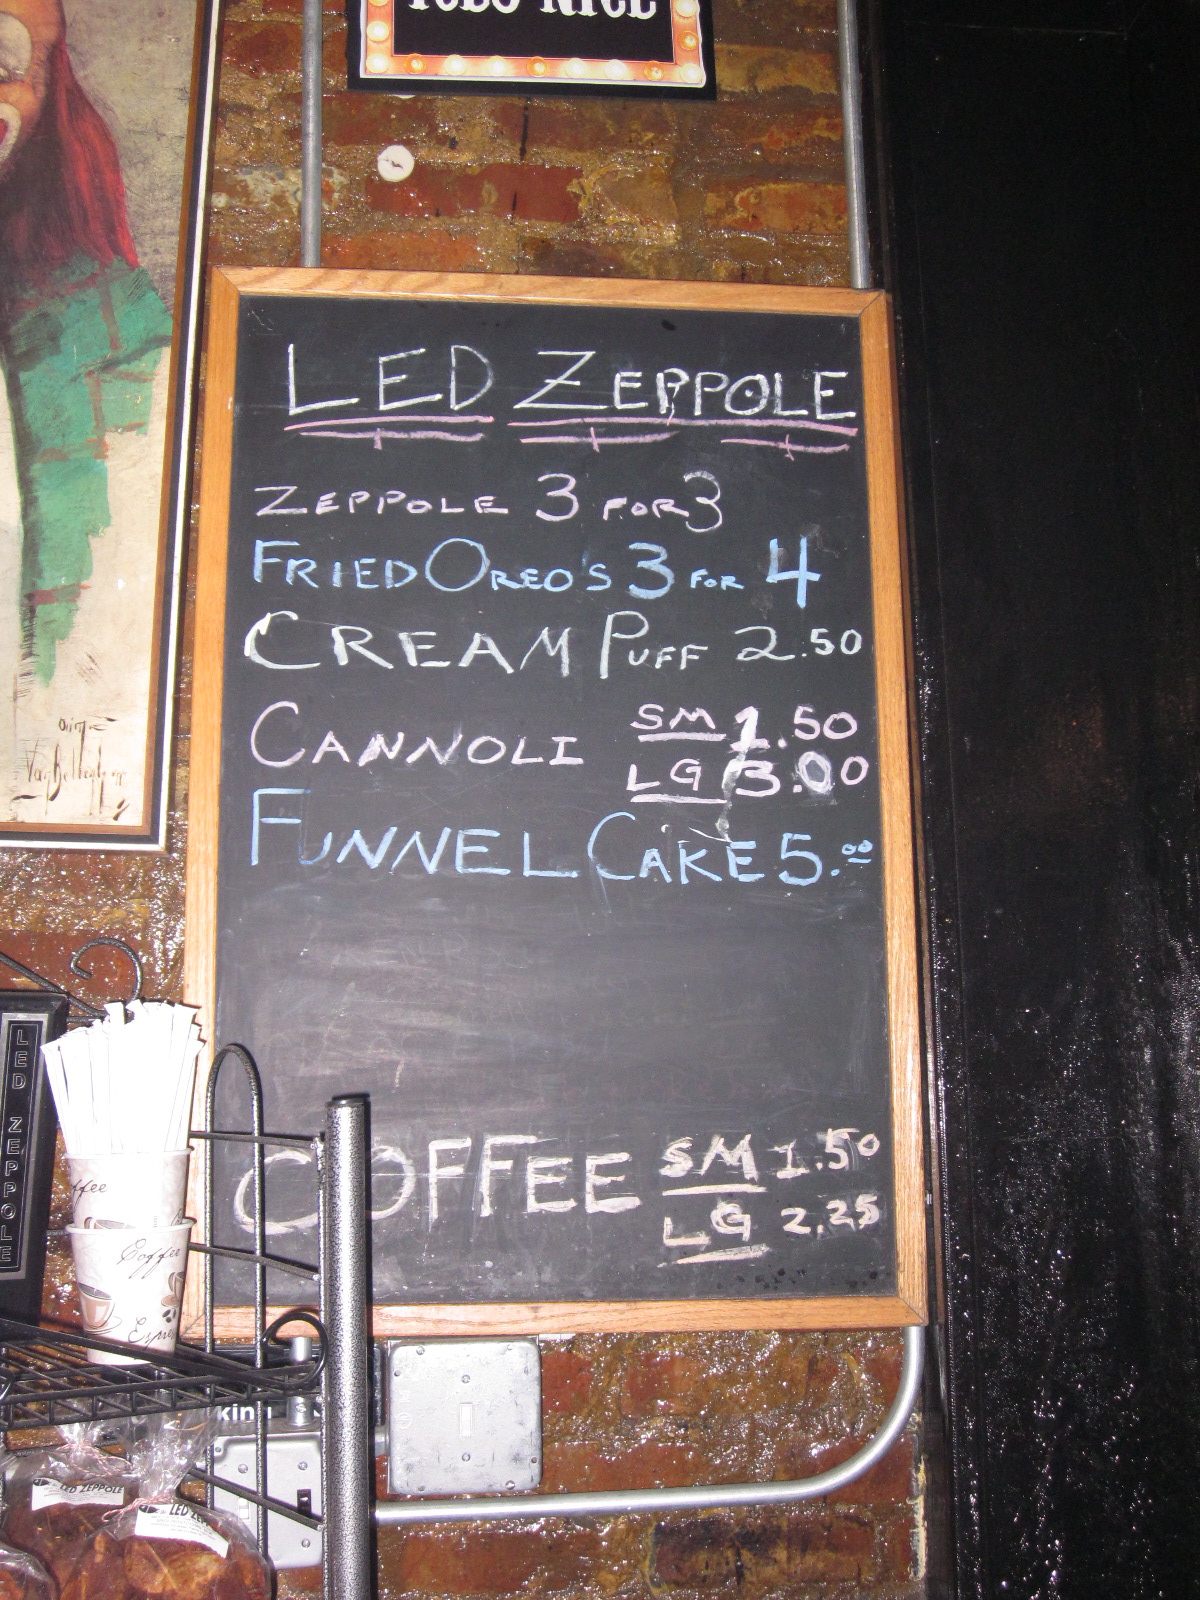 LED ZEPPOLE
ZEPPOLE 3 FOR 3
FRIED OREO'S 3 FOR 4
CREAM PUFF 2.50
CANNOLI SM 1.50
LG 3.00
FUNNEL CAKE 5.00
COFFEE SM 1.50
LG 2.25
LED ZEPPOLE
ffee
Coffee
LED ZEPPOLE
LED